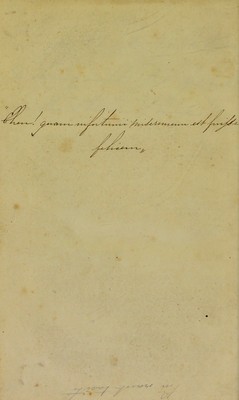 Eheu! quam infortunii miserrimum est fuisse
felicem,